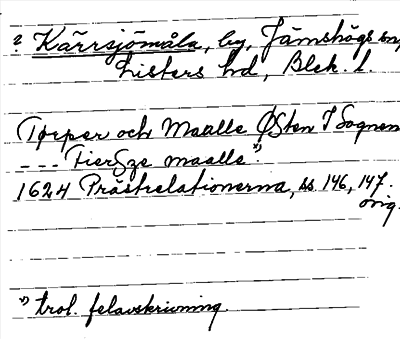 ? Kärrsjömåla, by, Jämshögs sn,
Listers hd, Blek. l.
Torper och Maalle Østen I Sognen
--- TierSze maalle *)
1624 Prästrelationerna, ss. 146, 147.
orig.
*) trol. felavskrivning.